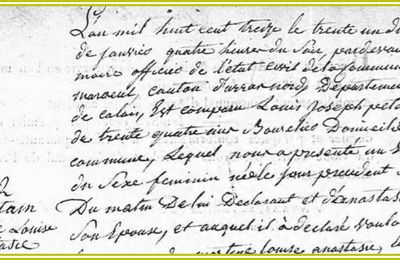 L'an mil huit cent treize le trente un du
de janvier quatre heures du soir pardevant
maire officier de l'état civil de la commune
maroeuil, canton d'arras nord, Département
de calais, Est comparu Louis Joseph
de trente quatre ans Bourelier Domicilié
commune, Lequel nous a présenté un
du Sexe feminin née le jour précédent
Du matin De lui Déclarant et d'anastasie
Son Epouse, et auquel il a déclaré vouloir
louise anastasie,
Louise